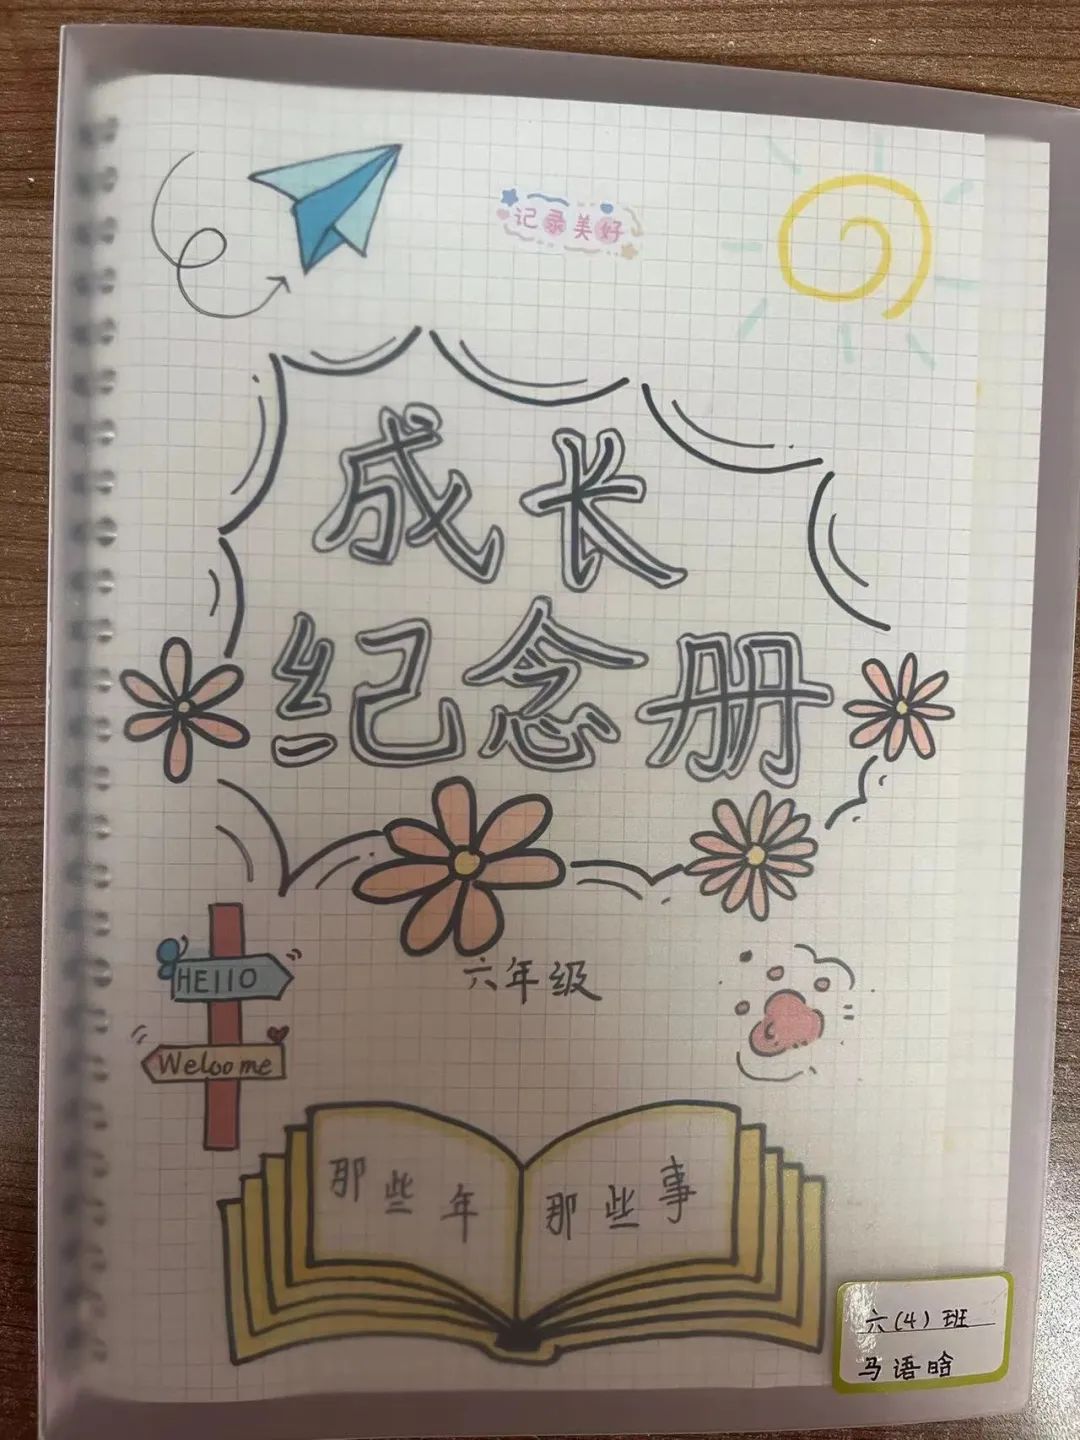 记录美好
成长
纪念册
六年级
HEllO
Weloome
那些年 那些事
六(4)班
马语晗